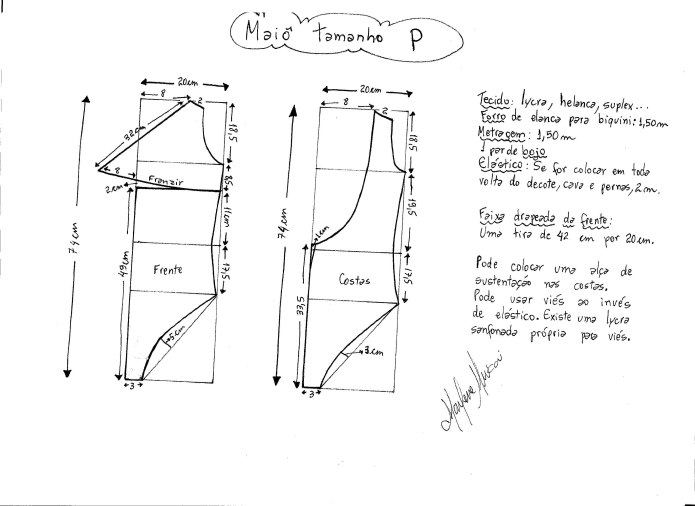 Maiô tamanho P
20cm
8
2
32cm
18,5
8
Franzir
8,5
2cm
11cm
74cm
49cm
Frente
17,5
5cm
3
20cm
8
2
18,5
19,5
1cm
74cm
Costas
17,5
33,5
3cm
3
Tecido: lycra, helanca, suplex...
Forro de elanca para biquini: 1,50m
Metragem: 1,50m
1 par de bojo
Elástico: Se for colocar em toda
volta do decote, cava e pernas, 2m.
Faixa drapeada da frente:
Uma tira de 42 cm por 20cm.
Pode colocar uma alça de
sustentação nas costas.
Pode usar viés ao invés
de elástico. Existe uma lycra
sanfonada própria para viés.